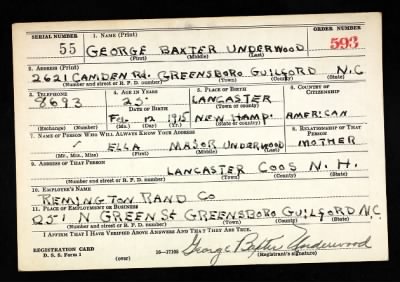 SERIAL NUMBER 1. NAME (Print) ORDER NUMBER
55 GEORGE BAXTER UNDERWOOD 593
(First) (Middle) (Last)
2. ADDRESS (Print)
2621 CAMDEN Rd. GREENSBORO GUILFORD N.C
(Number and street or R. F. D. number) (Town) (County) (State)
3. TELEPHONE 4. AGE IN YEARS 5. PLACE OF BIRTH 6. COUNTRY OF CITIZENSHIP
8693 25 LANCASTER
DATE OF BIRTH (Town or county)
Feb 12 1915 NEW HAMP. AMERICAN
(Exchange) (Number) (Mo.) (Day) (Yr.) (State or country)
7. NAME OF PERSON WHO WILL ALWAYS KNOW YOUR ADDRESS 8. RELATIONSHIP OF THAT PERSON
ELLA MAJOR UNDERWOOD MOTHER
(Mr., Mrs., Miss) (First) (Middle) (Last)
9. ADDRESS OF THAT PERSON
LANCASTER COOS N. H.
(Number and street or R. F. D. number) (Town) (County) (State)
10. EMPLOYER'S NAME
REMINGTON RAND CO
11. PLACE OF EMPLOYMENT OR BUSINESS
N GREEN St GREENSBORO GUILFORD N.C.
(Number and street or R. F. D. number) (Town) (County) (State)
I AFFIRM THAT I HAVE VERIFIED ABOVE ANSWERS AND THAT THEY ARE TRUE.
REGISTRATION CARD George Baxter Underwood
D. S. S. Form 1 (over) 16—17105 (Registrant's signature)